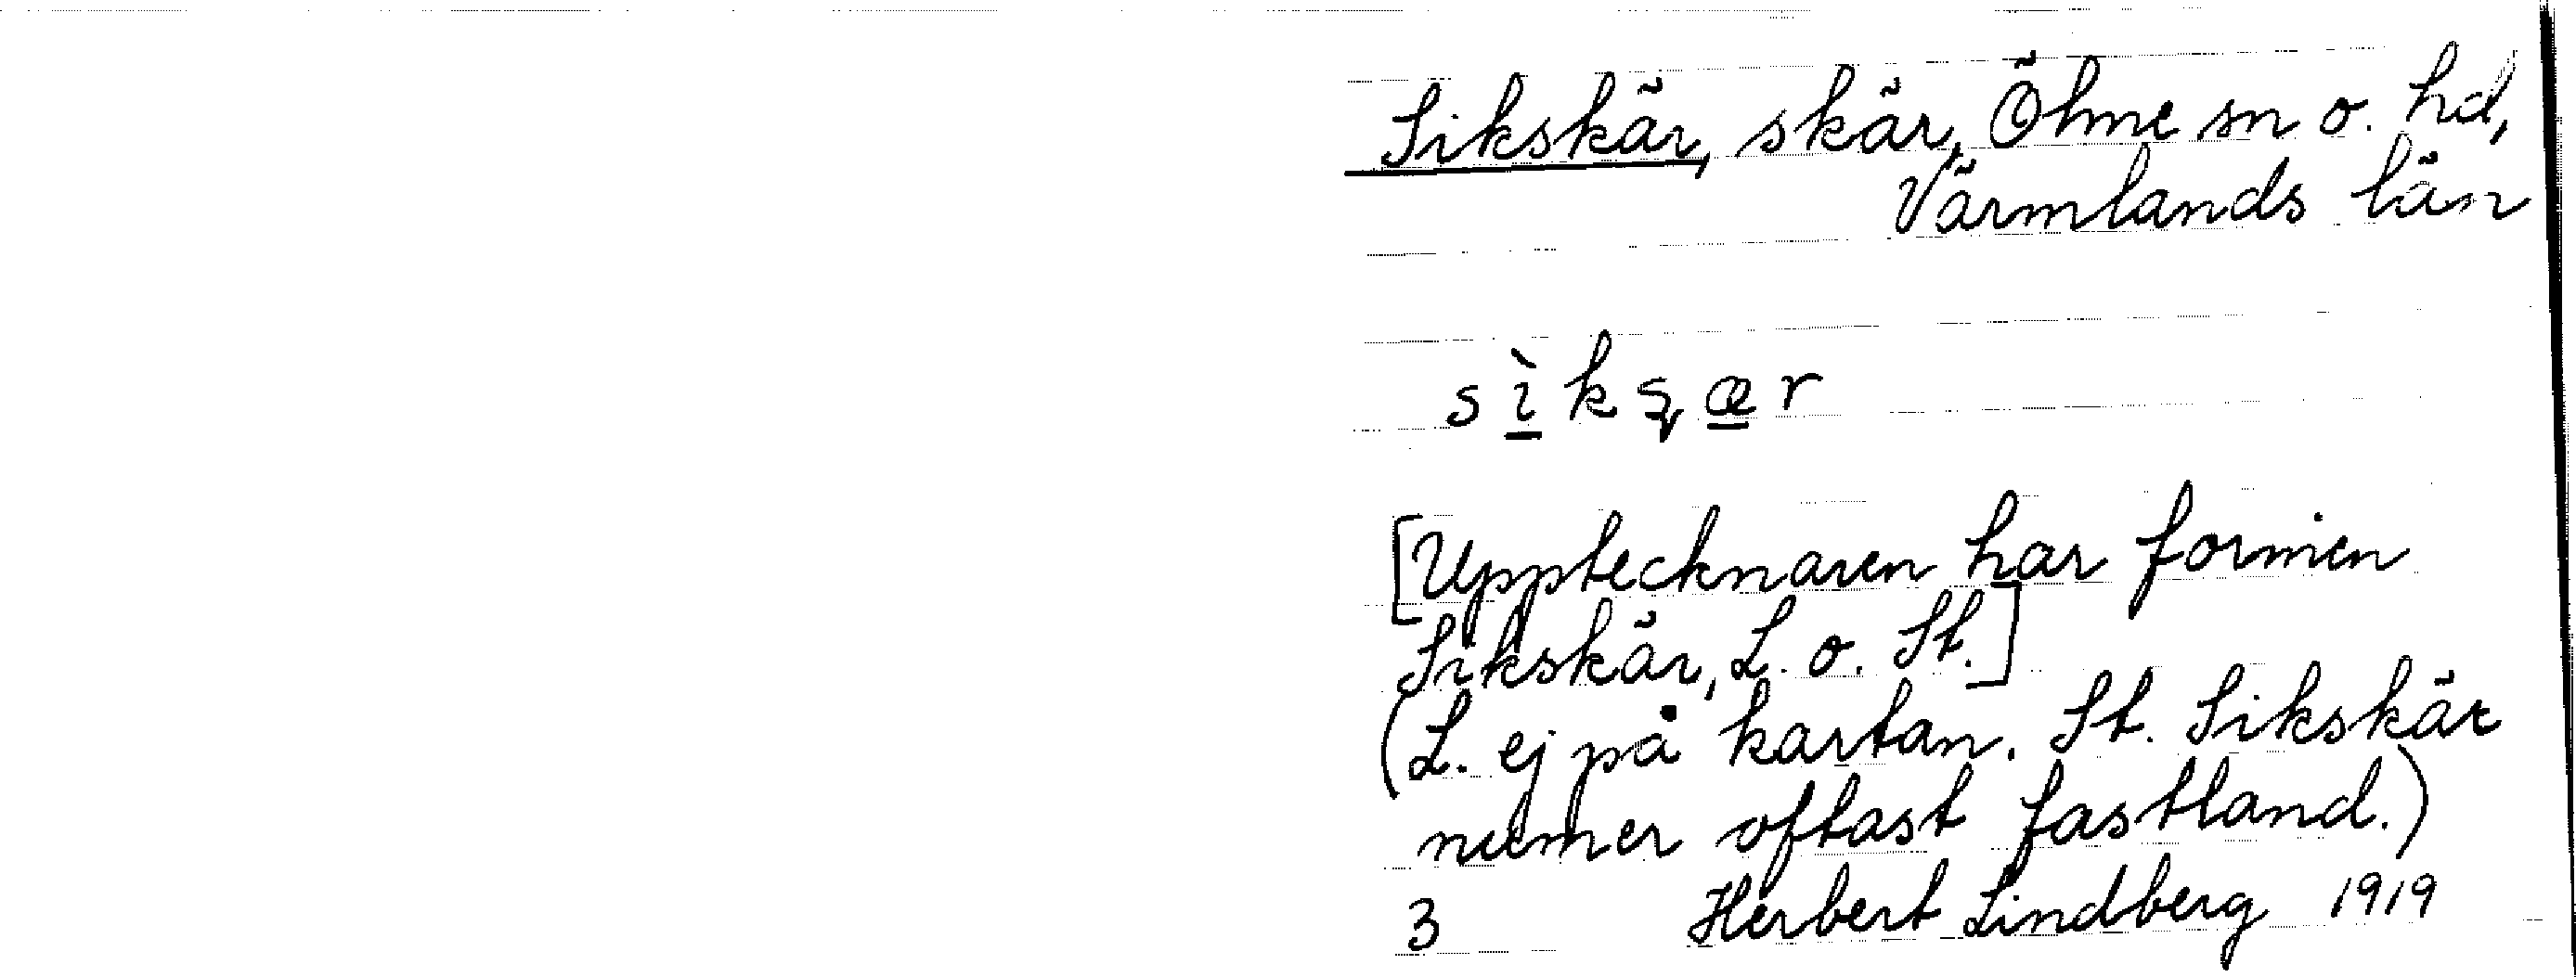 Sikskär, skär, Ölme sn o. hd,
Värmlands län
sìkʂær
[Upptecknaren har formen
Sikskär, L. o. St.]
(L. ej på kartan. St. Sikskär
numer oftast fastland.)
3 Herbert Lindberg 1919